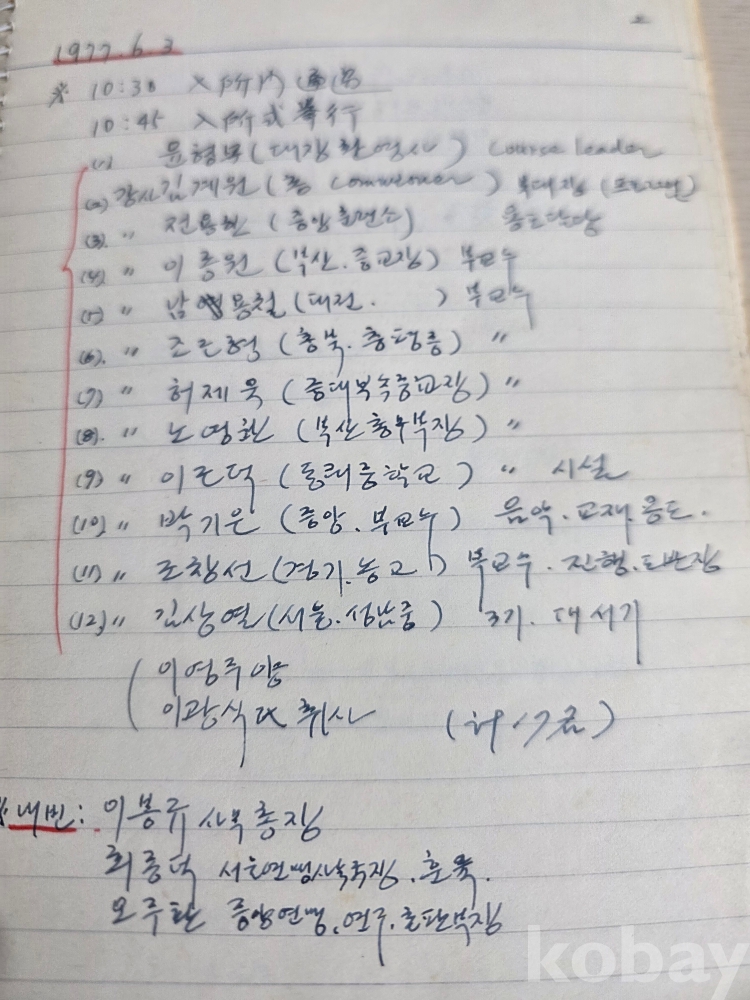 1977.6.3
※ 10:30 入所門通過
10:45 入所式擧行
(1) 윤형모 (대장 ) course leader
(2) 강사 김계원 ( commissioner) 부대장
(3) 〃 전용환 (중앙훈련소)
(4) 〃 이종원 (부산. 중교장) 부교수
(5) 〃 남용철 (대전. ) 부교수
(6). 〃 조근혁 (충북. ) 〃
(7) 〃 허제욱 (중대부속중교장) 〃
(8). 〃 노영환 (부산총무부장) 〃
(9) 〃 이근덕 (동래중학교) 〃 시설
(10) 〃 박기은 (중앙. 부교수) 음악. 교재.
(11) 〃 조창선 (경기. 농고) 부교수. 진행.
(12) 〃 김상열 (서울. 성남중) 3기. 대 서기
이영주 양
이광식 氏 취사 (計 17名)
※ 내빈: 이봉규 사무총장
최종덕 서울연맹사무국장.
오주환 중앙연맹. 연구. 출판부장
kobay